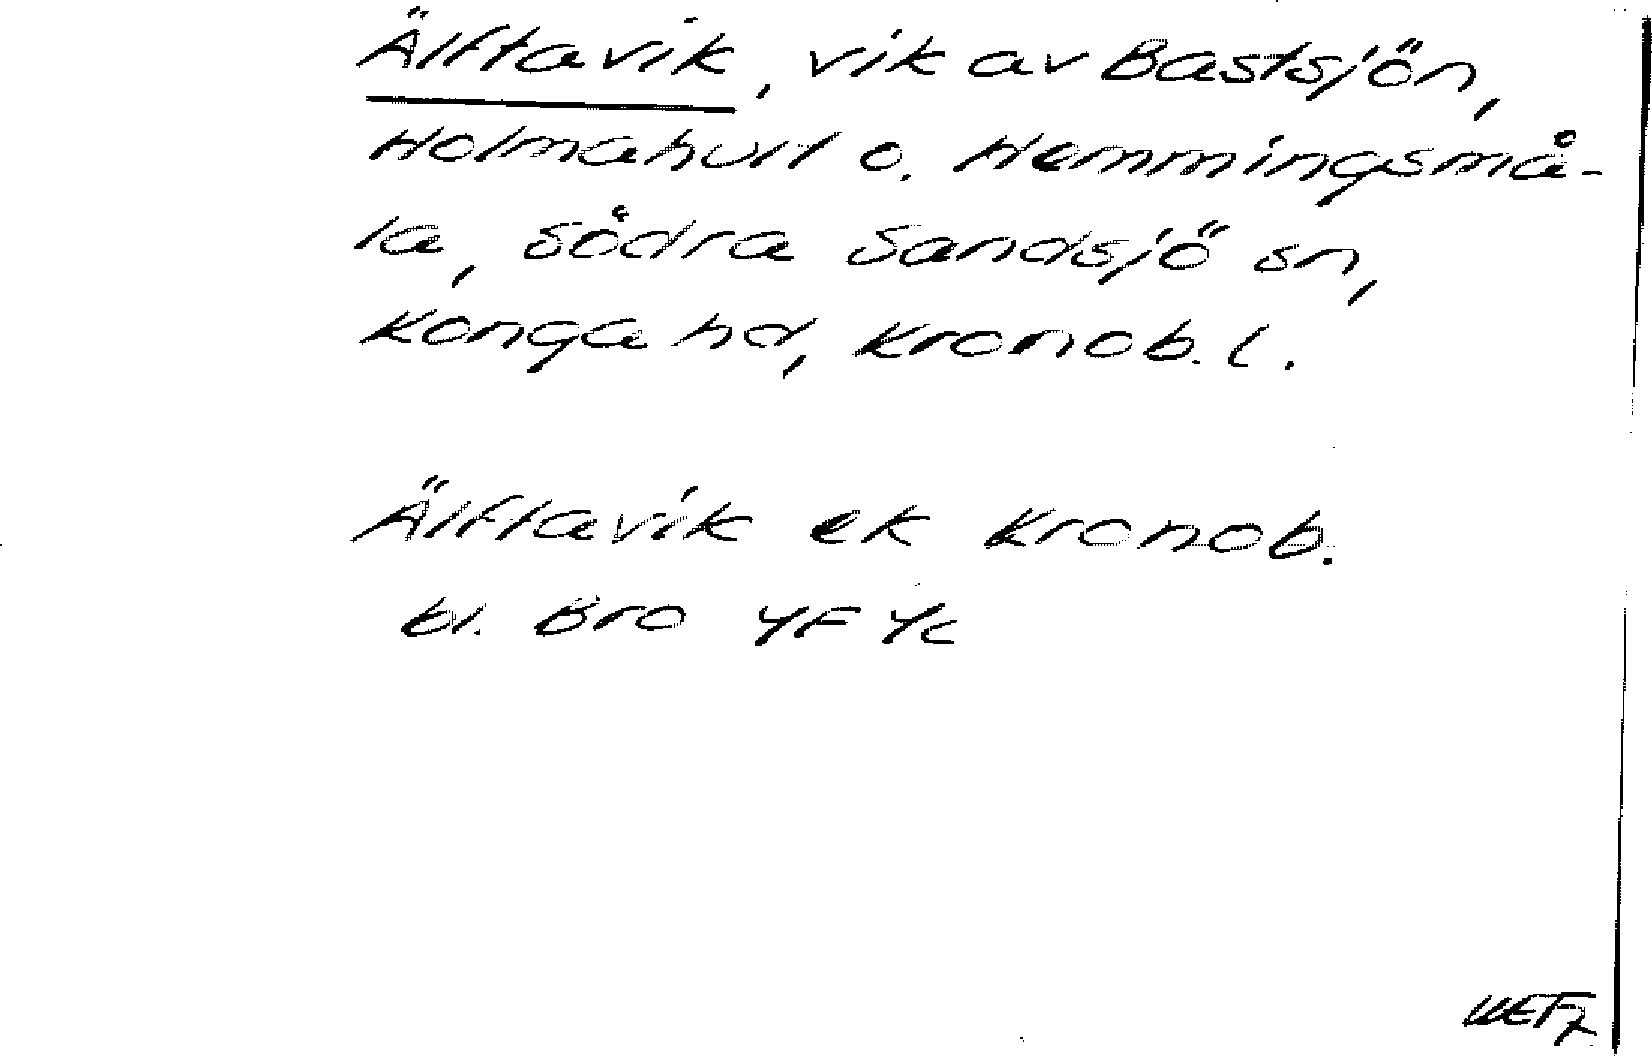 Älftavik, vik av Bastsjön,
Holmahult o. Hemmingsmå-
la, Södra Sandsjö sn,
Konga hd, Kronob. l.
Älftavik ek Kronob.
bl. Bro 4F 4c